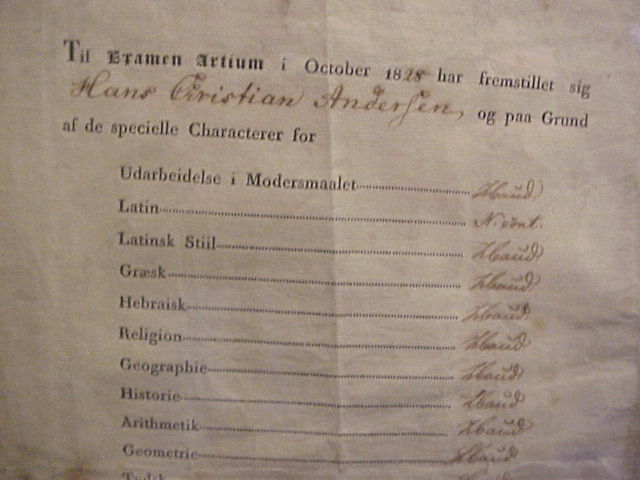 Til Examen Artium i October 1828 har fremstillet sig
Hans Christian Andersen, og paa Grund
af de specielle Characterer for
Udarbeidelse i Modersmaalet Haud
Latin N. cont.
Latinsk Stiil Haud
Græsk Haud
Hebraisk Haud
Religion Haud
Geographie Haud
Historie Haud
Arithmetik Haud
Geometrie Haud
Tydsk